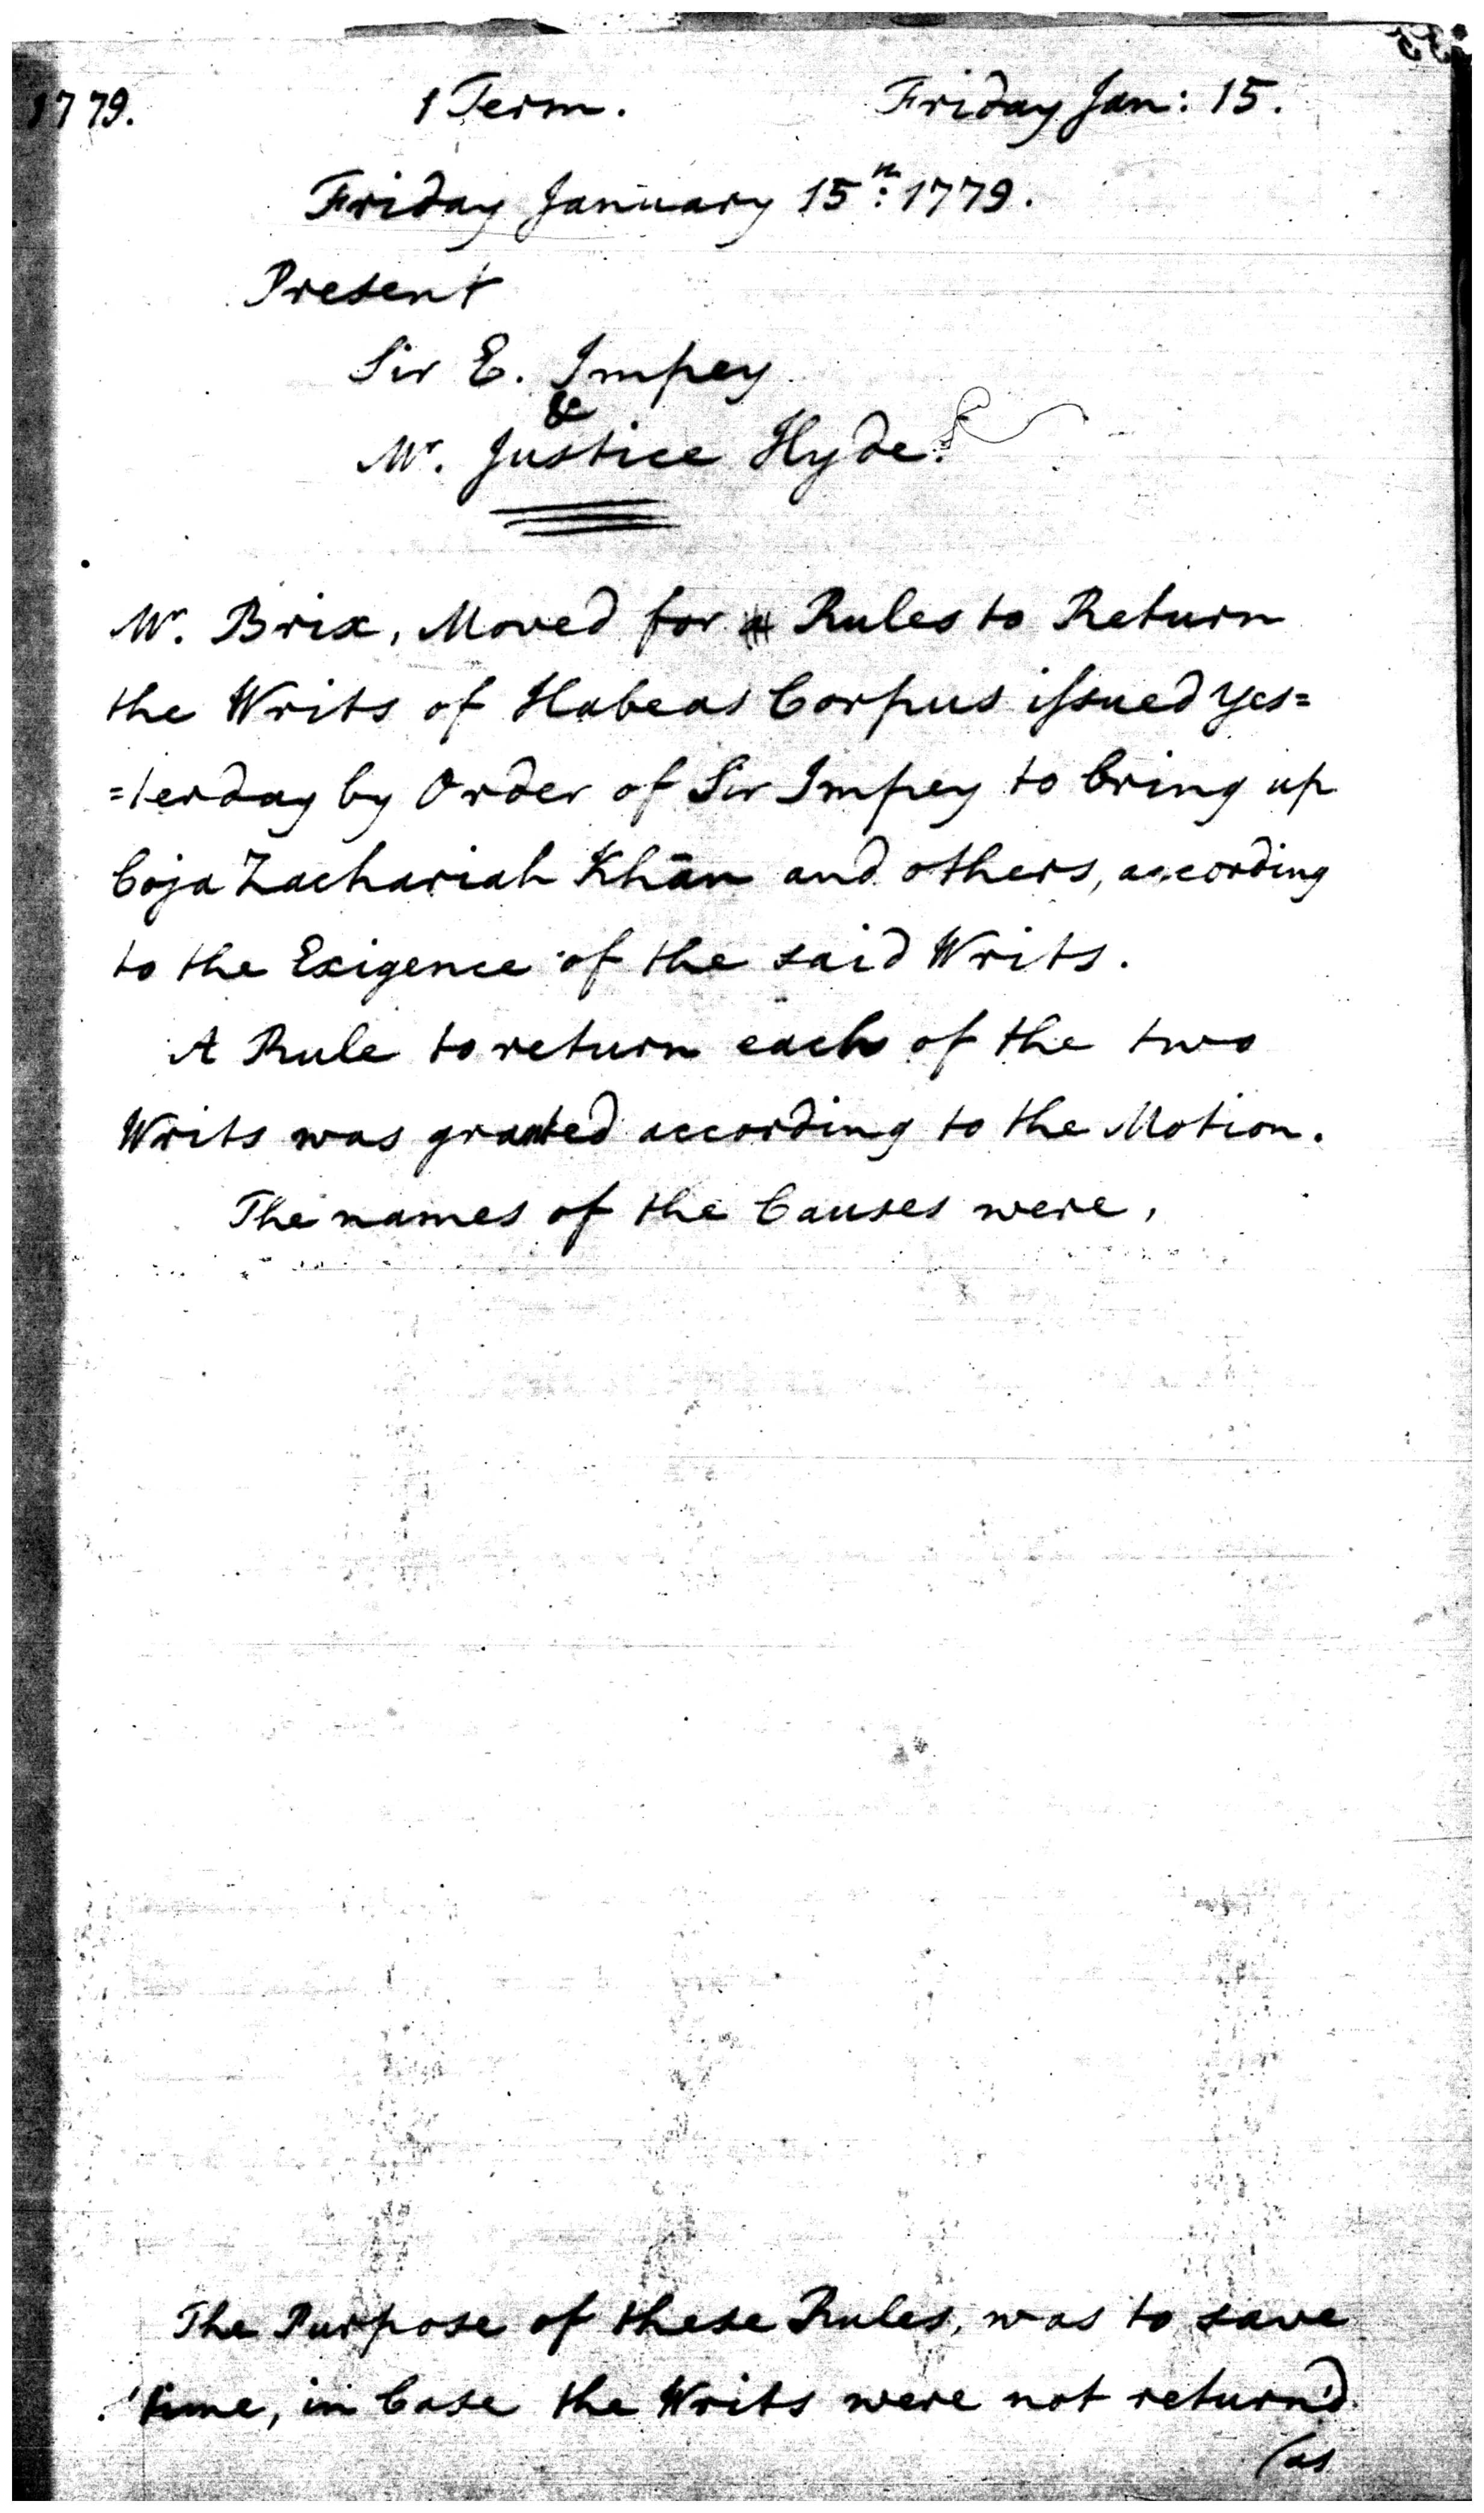 1779. 1 Term. Friday Jan: 15.
Friday January 15th: 1779.
Present
Sir E. Impey
&
Mr. Justice Hyde.
Mr. Brix, Moved for Rules to Return
the Writs of Habeas Corpus ifsued yes=
=terday by Order of Sir Impey to bring up
Coja Zachariah Khān and others, according
to the Exigence of the said Writs.
A Rule to return each of the two
Writs was granted according to the Motion.
The names of the Causes were,
The Purpose of these Rules, was to save
time, in Case the Writs were not return'd
(as